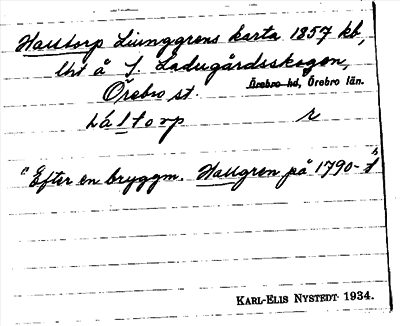 Halltorp Ljunggrens karta 1857 kb,
lht å S. Ladugårdsskogen,
Örebro st. Örebro hd, Örebro län.
hál̲torp r
"Efter en bryggm. Hallgren på 1790-t
KARL-ELIS NYSTEDT 1934.